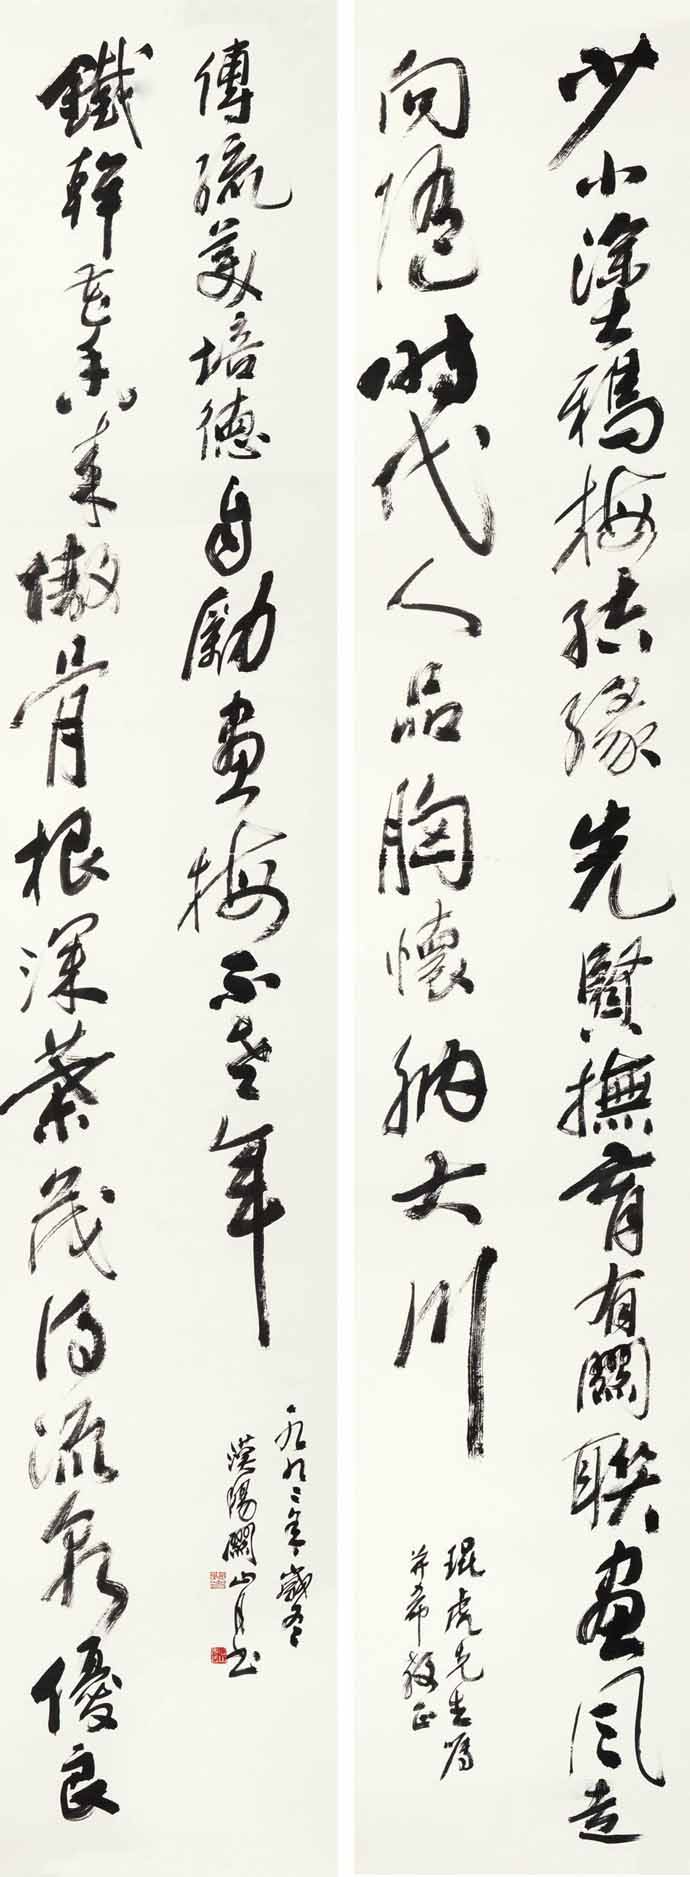 少小塗鴉梅結緣先賢撫育有關聯畫風走
向隨時代人品胸懷納大川
琨虎先生囑
并希教正
鐵幹花香來傲骨根深葉茂得流泉優良
傳統美培德自勵畫梅不老年
一九九三年歲冬
漠陽關山月書